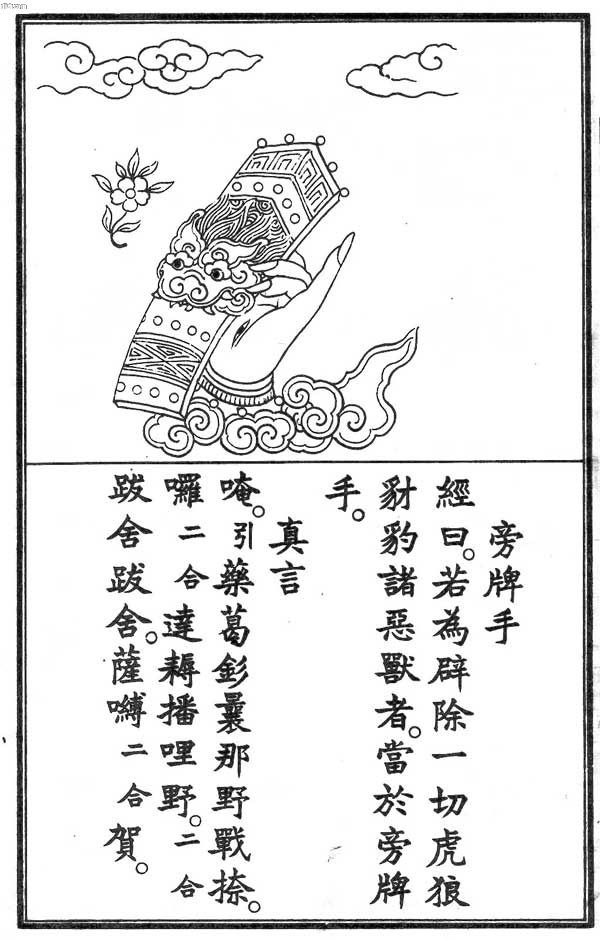 旁牌手
經曰。若為辟除一切虎狼
豺豹諸惡獸者。當於旁牌
手。
真言
唵。引藥葛釤曩那野戰捺。
囉二合達耨播哩野。二合
跋舍跋舍。薩嚩二合賀。